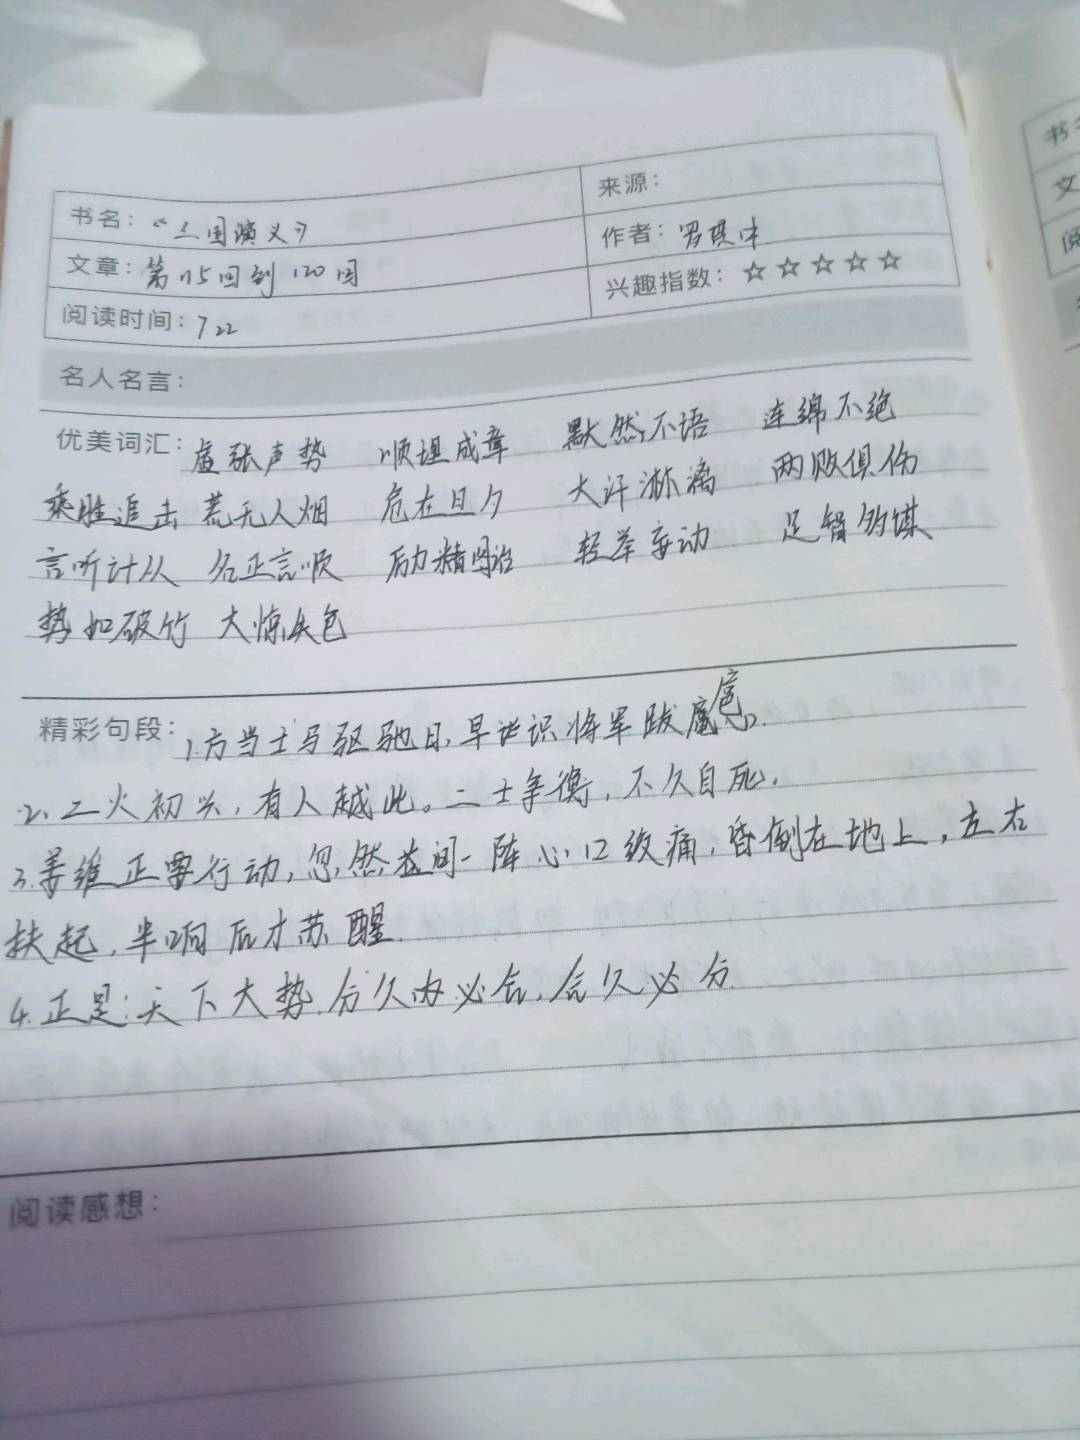 书名：《三国演义》
来源：
作者：罗贯中
文章：第115回到120回
兴趣指数：☆☆☆☆☆
阅读时间：7 22
名人名言：
优美词汇：虚张声势 顺理成章 默然不语 连绵不绝
乘胜追击 荒无人烟 危在旦夕 大汗淋漓 两败俱伤
言听计从 名正言顺 励精图治 轻举妄动 足智多谋
势如破竹 大惊失色
精彩句段：1.方当士马驱驰日,早识将军跋扈
2、二火初兴，有人越此。二士争衡，不久自死,
3.姜维正要行动,忽然间一阵心口绞痛,昏倒在地上，左右
扶起,半晌后才苏醒.
4.正是:天下大势.分久必合,合久必分.
阅读感想：
书
文
阅